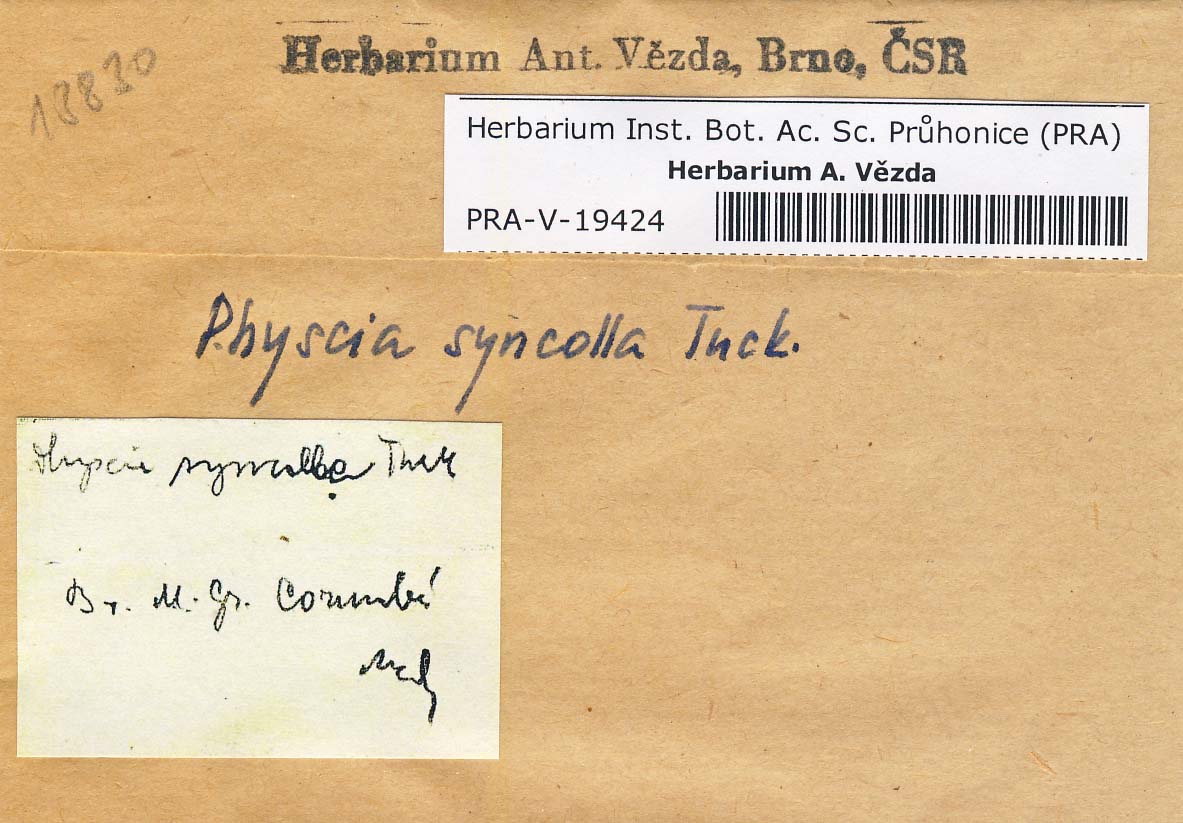 Herbarium Ant. Vězda, Brno, ČSR
18830
Herbarium Inst. Bot. Ac. Sc. Průhonice (PRA)
Herbarium A. Vězda
PRA-V-19424
Physcia syncolla Tuck.
Physcia syncolla Tuck
Br. M. Gr. Corumbá